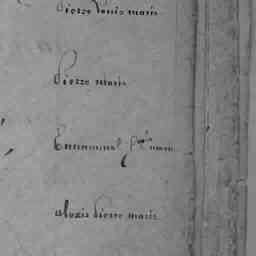 pierre Louis marie
Pierre marie
Emmanuel
alexis pierre marie